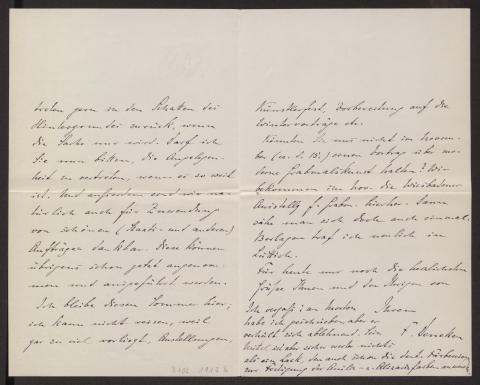 treten gern in den Schatten des
Hintergrundes zurück, wenn
die Sache nur wird. Darf ich
Sie nun bitten, die Angelegen-
heit zu vertreten, wenn es so weit
ist. Und außerdem sind wir na-
türlich auch für Zuwendung
von schönen (Staats- und anderen)
Aufträgen dankbar. Diese können
übrigens schon jetzt angenom-
men und ausgeführt werden.
Ich bleibe diesen Sommer hier;
ich kann nicht reisen, weil
gar zu viel vorliegt, Ausstellungen,
Künstlerfest, Vorbereitung auf die
Wintervorträge etc.
Könnten Sie uns nicht im Novem-
ber (ca. d. 15.) einen Vortrag über mo-
derne Grabmalskunst halten? Wir
bekommen im Nov. die Wiesbadener
Ausstellg f. Grabm. hierher. Dann
sähe man sich doch auch einmal.
traf ich neulich in
Für heute nur noch die herzlichsten
Grüße Ihnen und den Ihrigen von
Ihrem
Ich vergaß: an
habe ich geschrieben, aber er
verhält sich ablehnend. Sein
F. Deneken
Mittel ist aber sicher weiter nichts
als ein Lack, den auch schon die
zur Festigung der Anilin- u. Alizarinfarben